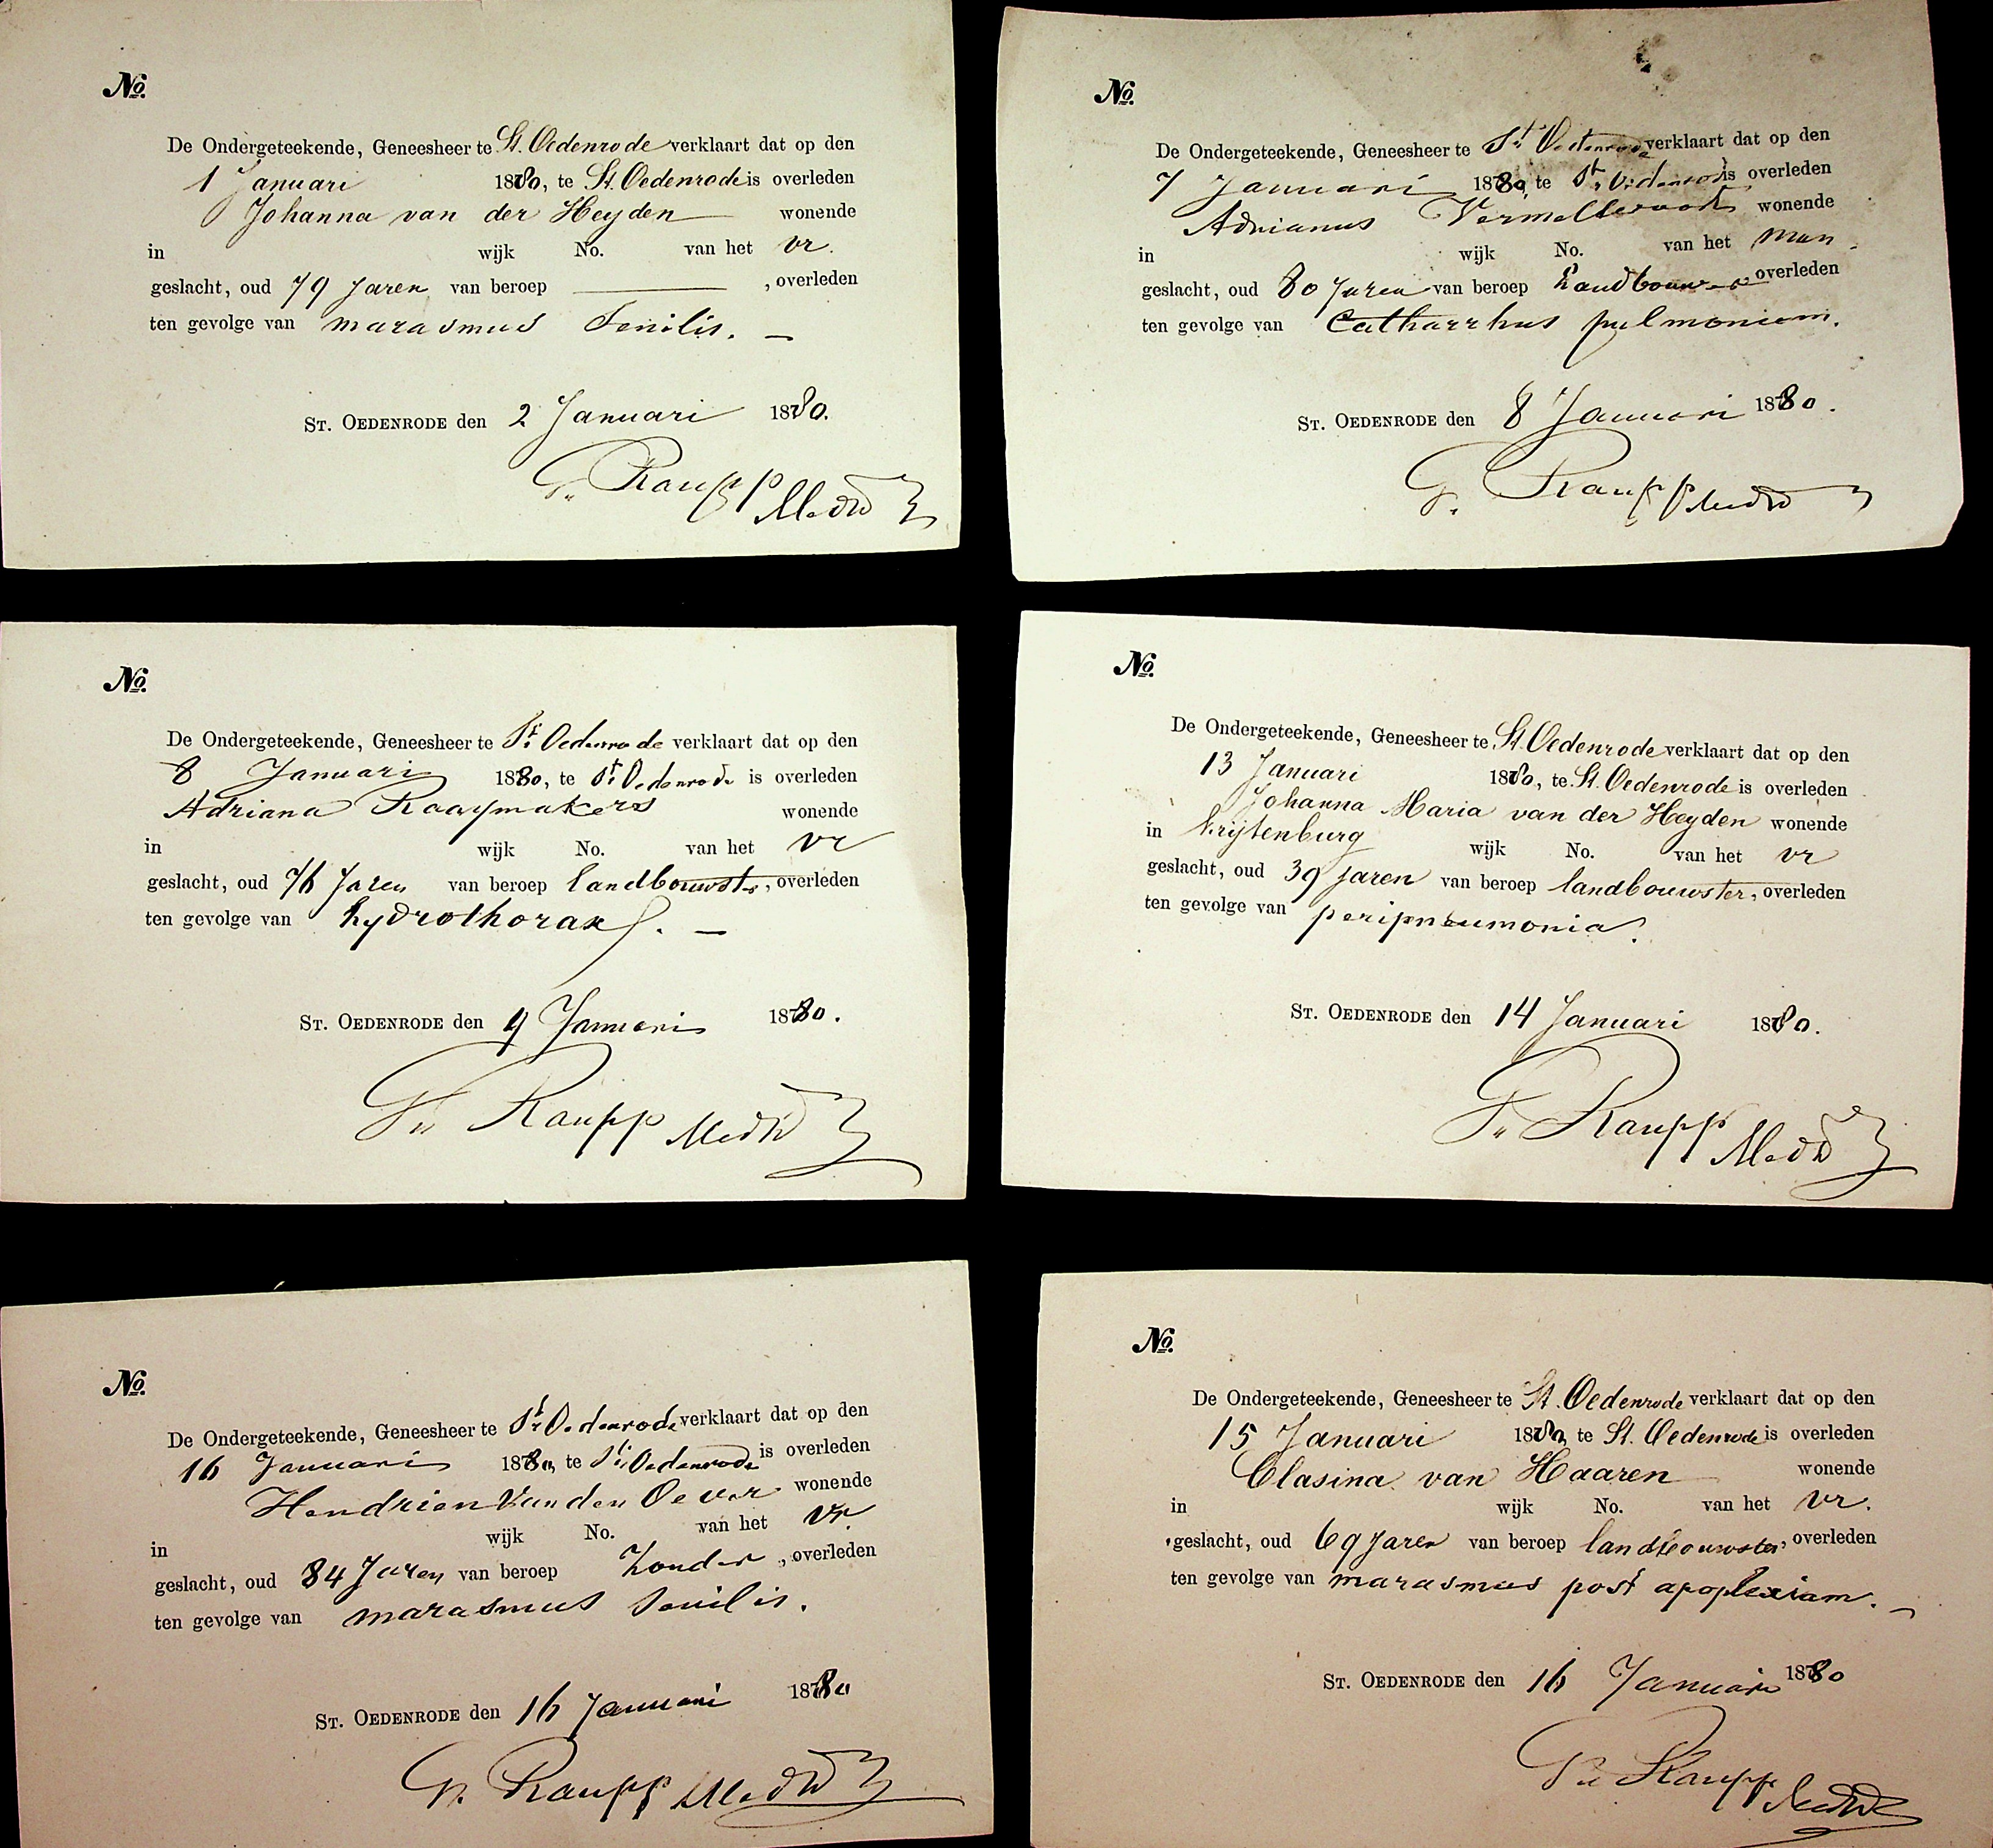 No.
De Ondergeteekende, Geneesheer te St. Oedenrode verklaart dat op den
1 Januari 1880, te St. Oedenrode is overleden
Johanna van der Heyden wonende
in wijk No. van het vr.
geslacht, oud 79 Jaren van beroep ———, overleden
ten gevolge van marasmus Senilis. —
St. Oedenrode den 2 Januari 1880.
Fr. Raupp Med D
No.
De Ondergeteekende, Geneesheer te St. Oedenrode verklaart dat op den
7 Januari 1880, te St. Oedenrode is overleden
Adrianus wonende
in wijk No. van het man
geslacht, oud 80 Jaren van beroep Landbouwer overleden
ten gevolge van Catharrhus pulmonum.
St. Oedenrode den 8 Januari 1880.
Fr. Raupp Med D
No.
De Ondergeteekende, Geneesheer te St. Oedenrode verklaart dat op den
8 Januari 1880, te St. Oedenrode is overleden
Adriana Raaymakers wonende
in wijk No. van het vr
geslacht, oud 76 Jaren van beroep landbouwster, overleden
ten gevolge van hydrothorax. —
St. Oedenrode den 9 Januari 1880.
Fr. Raupp Med D
No.
De Ondergeteekende, Geneesheer te St. Oedenrode verklaart dat op den
13 Januari 1880, te St. Oedenrode is overleden
Johanna Maria van der Heyden wonende
in Krijtenburg wijk No. van het vr
geslacht, oud 39 jaren van beroep landbouwster, overleden
ten gevolge van peripneumonia.
St. Oedenrode den 14 Januari 1880.
Fr. Raupp Med D
No.
De Ondergeteekende, Geneesheer te St. Oedenrode verklaart dat op den
16 Januari 1880, te St. Oedenrode is overleden
Hendrien van den Oever wonende
in wijk No. van het vr.
geslacht, oud 84 Jaren van beroep Zonder, overleden
ten gevolge van marasmus Senilis.
St. Oedenrode den 16 Januari 1880
Fr. Raupp Med D
No.
De Ondergeteekende, Geneesheer te St. Oedenrode verklaart dat op den
15 Januari 1880, te St. Oedenrode is overleden
Clasina van Haaren wonende
in wijk No. van het vr.
geslacht, oud 69 Jaren van beroep landbouwster, overleden
ten gevolge van marasmus post apoplexiam. —
St. Oedenrode den 16 Januari 1880
Fr. Raupp Med D